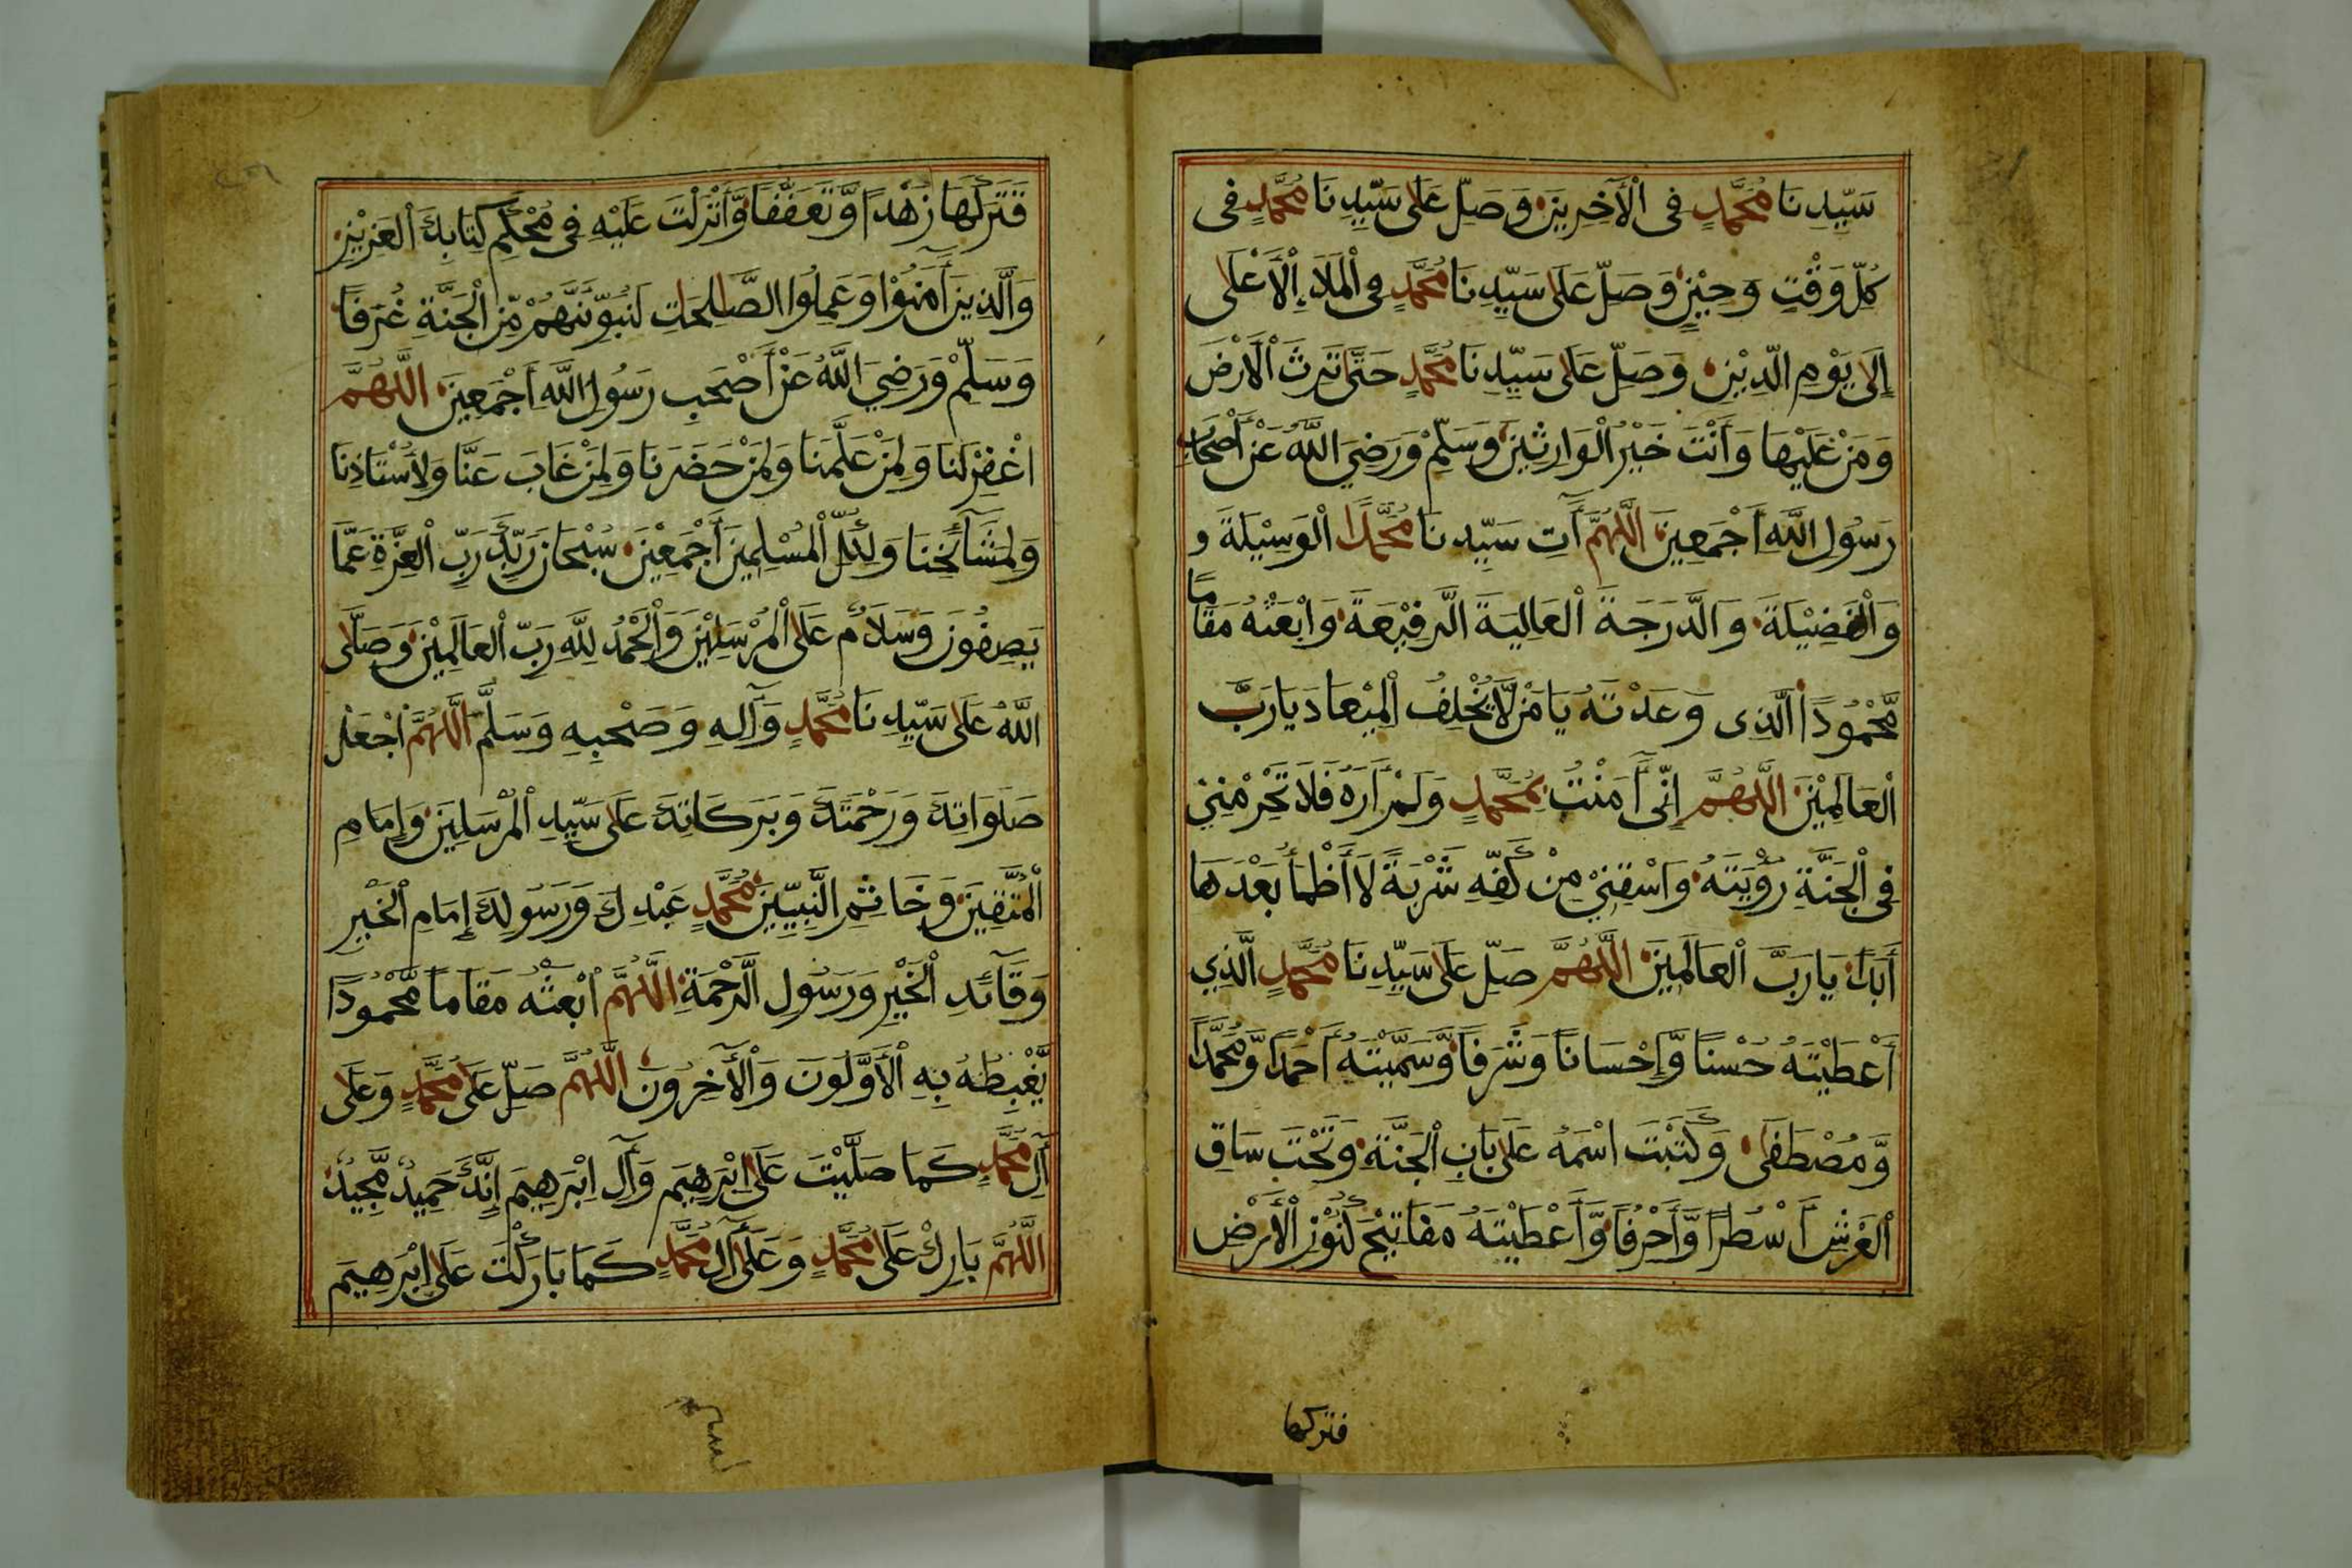 سَيِّدِنَا مُحَمَّدٍ فِى الْآخِرِينَ وَصَلِّ عَلَى سَيِّدِنَا مُحَمَّدٍ فِى
كُلِّ وَقْتٍ وَحِيْنٍ وَصَلِّ عَلَى سَيِّدِنَا مُحَمَّدٍ فِى الْمَلَاءِ الْأَعْلَى
إِلَى يَوْمِ الدِّيْنِ وَصَلِّ عَلَى سَيِّدِنَا مُحَمَّدٍ حَتَّى تَرِثَ الْاَرْضَ
وَمَنْ عَلَيْهَا وَأَنْتَ خَيْرُ الْوَارِثِينَ وَسَلِّمْ وَرَضِيَ اللَّهُ عَنْ أَصْحَابِ
رَسُولِ اللَّهِ أَجْمَعِينَ اللَّهُمَّ آتِ سَيِّدِنَا مُحَمَّدًا الْوَسِيْلَةَ و
وَالْفَضِيْلَةَ وَالدَّرَجَةَ الْعَالِيَةَ الرَّفِيْعَةَ وَابْعَثْهُ مَقَامًا
مَّحْمُودًا الَّذِى وَعَدْتَهُ يَا مَنْ لَّا يُخْلِفُ الْمِيْعَادَ يَا رَبَّ
الْعَالَمِيْنَ اللَّهُمَّ إِنِّى آمَنْتُ بِمُحَمَّدٍ وَلَمْ أَرَهُ فَلَا تَحْرِمْنِيْ
فِى الْجَنَّةِ رُؤْيَتَهُ وَاسْقِنِيْ مِنْ كَفِّهِ شَرْبَةً لَا أَظْمَأُ بَعْدَهَا
أَبَدًا يَا رَبَّ الْعَالَمِينَ اللَّهُمَّ صَلِّ عَلَى سَيِّدِنَا مُحَمَّدٍ الَّذِي
أَعْطَيْتَهُ حُسْنًا وَّإِحْسَانًا وَشَرَفًا وَّسَمَّيْتَهُ أَحْمَدًا وَّمُحَمَّدًا
وَّمُصْطَفَى وَكَتَبْتَ اسْمَهُ عَلَى بَابِ الْجَنَّةِ وَتَحْتَ سَاقِ
الْعَرْشِ أَسْطُرًا وَّأَحْرُفًا وَّأَعْطَيْتَهُ مَفَاتِيْحَ كُنُوْزِ الْأَرْضِ
فتركها
فَتَرَكَهَا زُهْدًا وَّتَعَفُّفًا وَّأَنْزَلْتَ عَلَيْهِ فِى مُحْكَمِ كِتَابِكَ الْعَزِيْزِ
وَالَّذِينَ آمَنُوْا وَعَمِلُوا الصَّلِحَاتِ لَنُبَوِّئَنَّهُمْ مِّنَ الْجَنَّةِ غُرَفًا
وَسَلِّمْ وَرَضِيَ اللَّهُ عَنْ أَصْحَبِ رَسُولِ اللَّهِ أَجْمَعِينَ اللَّهُمَّ
اغْفِرْ لَنَا وَلِمَنْ عَلَّمَنَا وَلِمَنْ حَضَرَنَا وَلِمَنْ غَابَ عَنَّا وَلِأُسْتَاذِنَا
وَلِمَشَآئِخِنَا وَلِكُلِّ الْمُسْلِمِينَ أَجْمَعِيْنَ سُبْحَانَ رَبِّكَ رَبِّ الْعِزَّةِ عَمَّا
يَصِفُونَ وَسَلَامٌ عَلَى الْمُرْسَلِيْنَ وَالْحَمْدُ لِلَّهِ رَبِّ الْعَالَمِيْنَ وَصَلَّى
اللَّهُ عَلَى سَيِّدِنَا مُحَمَّدٍ وَآلِهِ وَصَحْبِهِ وَسَلَّمَ اللَّهُمَّ اجْعَلْ
صَلَوَاتِكَ وَرَحْمَتَكَ وَبَرَكَاتِكَ عَلَى سَيِّدِ الْمُرْسَلِينَ وَإِمَامِ
الْمُتَّقِينَ وَخَاتِمِ النَّبِيِّينَ مُحَمَّدٍ عَبْدِكَ وَرَسُولِكَ إِمَامِ الْخَيْرِ
وَقَآئِدِ الْخَيْرِ وَرَسُولِ الرَّحْمَةِ اللَّهُمَّ ابْعَثْهُ مَقَامًا مَّحْمُودًا
يَّغْبِطُهُ بِهِ الْأَوَّلُونَ وَالْآخِرُونَ اللَّهُمَّ صَلِّ عَلَى مُحَمَّدٍ وَعَلَى
آلِ مُحَمَّدٍ كَمَا صَلَّيْتَ عَلَى اِبْرَهِيمَ وَآلِ اِبْرَهِيمَ إِنَّكَ حَمِيدٌ مَّجِيدٌ
اللَّهُمَّ بَارِكْ عَلَى مُحَمَّدٍ وَعَلَى آلِ مُحَمَّدٍ كَمَا بَارَكْتَ عَلَى اِبْرَهِيمَ